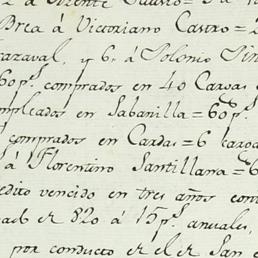 à Vicente Suarez = 
Brea á Victoriano Castro = 2
razaval, y 6 á Polonio Pin
60 p.s comprados en 40 Cargas
mpleados en Sabanilla = 60 p.s
comprados en Cardas = 6 carga
á Florentino Santillana = 6
edito vencido en tres años con
de 820 á 15 p.s anuales,
por conducto de el de San